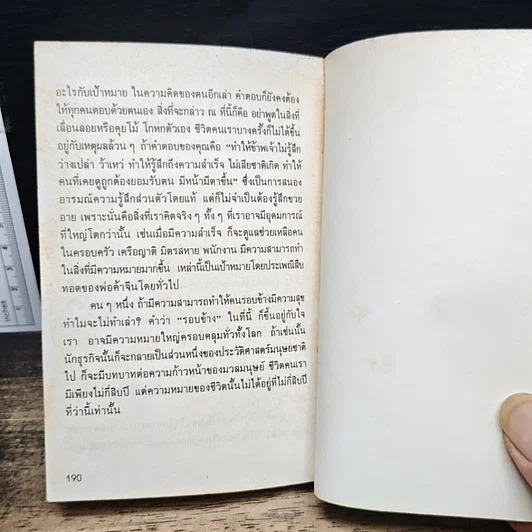 อะไรกับเป้าหมาย ในความคิดของตนอีกเล่า คำตอบก็ยังคงต้อง
ให้ทุกคนตอบด้วยตนเอง สิ่งที่จะกล่าว ณ ที่นี้ก็คือ อย่าพูดในสิ่งที่
เลื่อนลอยหรือคุยโม้ โกหกตัวเอง ชีวิตคนเราบางครั้งก็ไม่ได้ขึ้น
อยู่กับเหตุผลล้วน ๆ ถ้าคำตอบของคุณคือ "ทำให้ข้าพเจ้าไม่รู้สึก
ว่างเปล่า ว้าเหว่ ทำให้รู้สึกถึงความสำเร็จ ไม่เสียชาติเกิด ทำให้
คนที่เคยดูถูกต้องยอมรับตน มีหน้ามีตาขึ้น" ซึ่งเป็นการสนอง
อารมณ์ความรู้สึกส่วนตัวโดยแท้ แต่ก็ไม่จำเป็นต้องรู้สึกขวย
อาย เพราะนั่นคือสิ่งที่เราคิดจริง ๆ ทั้ง ๆ ที่เราอาจมีอุดมการณ์
ที่ใหญ่โตกว่านั้น เช่นเมื่อมีความสำเร็จ ก็จะดูแลช่วยเหลือคน
ในครอบครัว เครือญาติ มิตรสหาย พนักงาน มีความสามารถทำ
ในสิ่งที่มีความหมายมากขึ้น เหล่านี้เป็นเป้าหมายโดยประเพณีสืบ
ทอดของพ่อค้าจีนโดยทั่วไป
คน ๆ หนึ่ง ถ้ามีความสามารถทำให้คนรอบข้างมีความสุข
ทำไมจะไม่ทำเล่า? คำว่า "รอบข้าง" ในที่นี้ ก็ขึ้นอยู่กับใจ
เรา อาจมีความหมายใหญ่ครอบคลุมทั่วทั้งโลก ถ้าเช่นนั้น
นักธุรกิจนั้นก็จะกลายเป็นส่วนหนึ่งของประวัติศาสตร์มนุษยชาติ
ไป ก็จะมีบทบาทต่อความก้าวหน้าของมวลมนุษย์ ชีวิตคนเรา
มีเพียงไม่กี่สิบปี แต่ความหมายของชีวิตนั้นไม่ได้อยู่ที่ไม่กี่สิบปี
ที่ว่านี้เท่านั้น
190